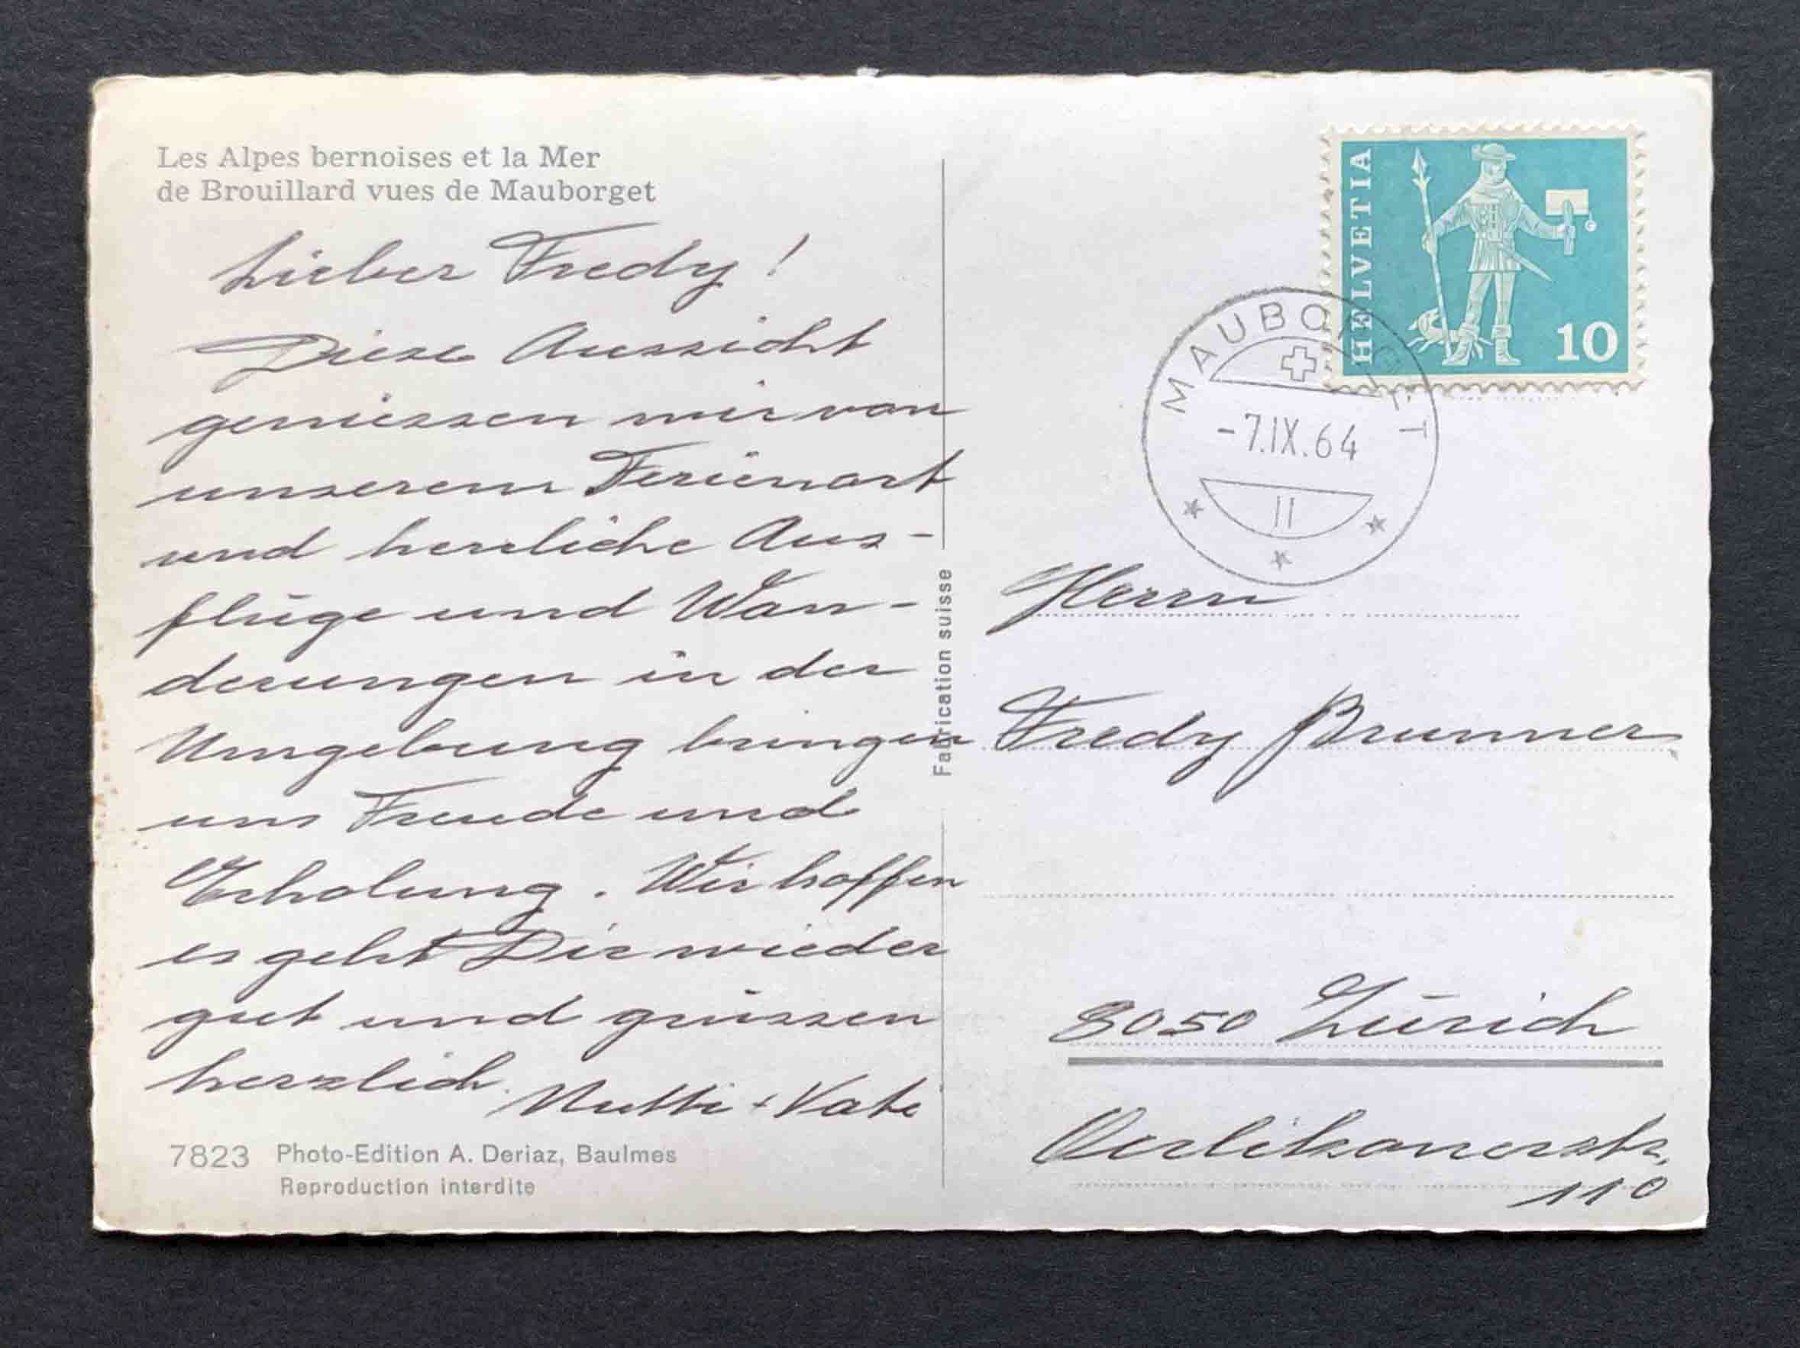 Les Alpes bernoises et la Mer
de Brouillard vues de Mauborget
Lieber Fredy!
Diese Aussicht
geniessen wir von
unserem Ferienort
und herrliche Aus-
flüge und Wan-
derungen in der
Umgebung bringen
uns Freude und
Erholung. Wir hoffen
es geht Dir wieder
gut und grüssen
herzlich. Mutti + Vati
7823 Photo-Edition A. Deriaz, Baulmes
Reproduction interdite
Fabrication suisse
HELVETIA
10
MAUBORGET
-7.IX.64
11
Herrn
Fredy Brunner
8050 Zürich
Oerlikonerstr.
110